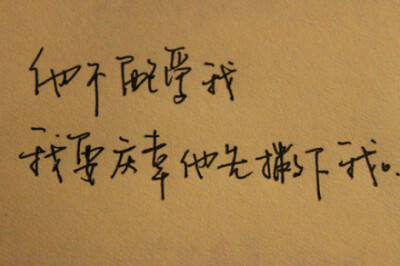 他不能爱我
我要庆幸他先撇下我。